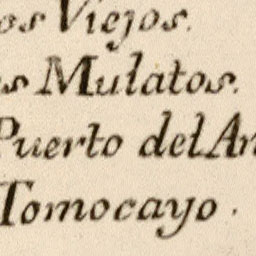 os Viejos.
es Mulatos.
Puerto del An
Tomocayo.